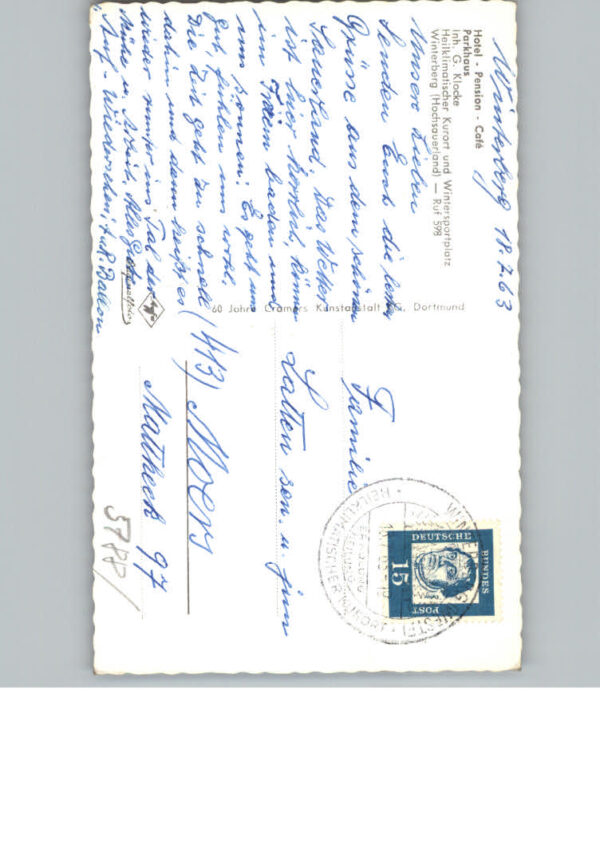 Hotel - Pension - Café
Parkhaus
Inh. G. Klocke
Heilklimatischer Kurort und Wintersportplatz
Winterberg (Hochsauerland) — Ruf 598
Winterberg 18.7.63
Unsere Lieben
Senden Euch die
Grüße aus dem schönen
Sauerland. Das Wetter
ist hier herrlich, können
im Freien baden und
uns sonnen. Es geht uns
gut, fühlen uns wohl.
Die Zeit geht zu schnell
dahin und dann heißt es
wieder runter ins Tal der
Mühe u. Arbeit. Alles Gute
Auf-Wiedersehen, F. u. R. Ballon
60 Jahre Cramers Kunstanstalt KG, Dortmund
Familie
Latten sen. u. jun
(413) Moers
Mattheck 97
5788/
DEUTSCHE
BUNDES
POST
15